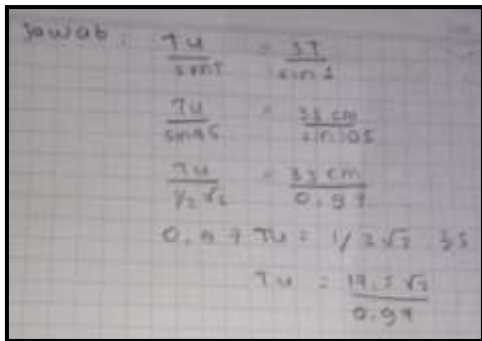 Jawab: TU / sin S = ST / sin 1
TU / sin 45 = 35 cm / sin 105
TU / 1/2 √2 = 35 cm / 0,97
0,97 TU = 1/2 √2 35
TU = 17,5 √2 / 0.97